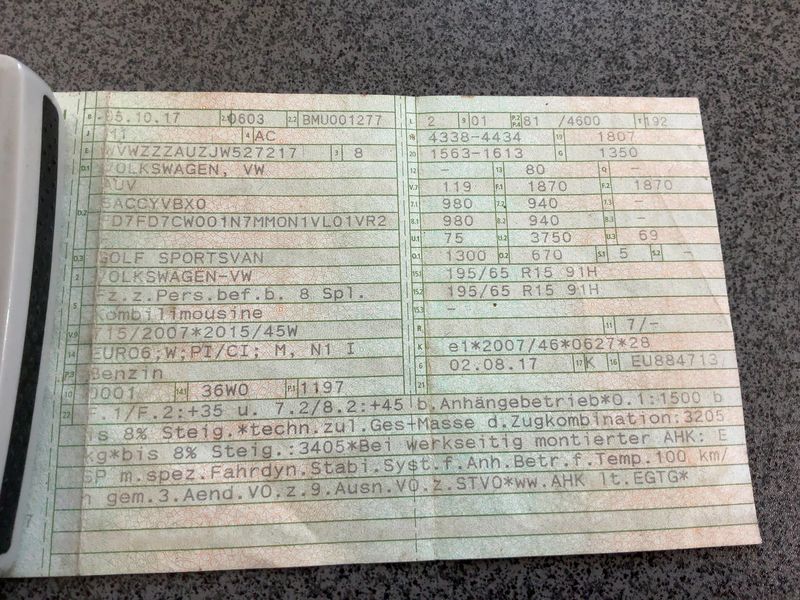 B 05.10.17 2.1 0603 2.2 BMU001277
J M1 4 AC
E WVWZZZAUZJW527217 3 8
D.1 VOLKSWAGEN, VW
AUV
D.2 SACCYVBX0
FD7FD7CW001N7MMON1VL01VR2
D.3 GOLF SPORTSVAN
2 VOLKSWAGEN-VW
5 Fz.z.Pers.bef.b. 8 Spl.
Kombilimousine
V.9 715/2007*2015/45W
14 EURO6;W;PI/CI; M, N1 I
P.3 Benzin
10 0001 14.1 36W0 P.1 1197
L 2 9 01 P.2 P.4 81 /4600 T 192
18 4338-4434 19 1807
20 1563-1613 G 1350
12 - 13 80 Q -
V.7 119 F.1 1870 F.2 1870
7.1 980 7.2 940 7.3 -
8.1 980 8.2 940 8.3 -
U.1 75 U.2 3750 U.3 69
O.1 1300 O.2 670 S.1 5 S.2 -
15.1 195/65 R15 91H
15.2 195/65 R15 91H
15.3 -
R 11 7/-
K e1*2007/46*0627*28
6 02.08.17 17 K 16 EU884713
21
22 F.1/F.2:+35 u. 7.2/8.2:+45 b.Anhängebetrieb*O.1:1500 b
is 8% Steig.*techn.zul.Ges-Masse d.Zugkombination:3205
kg*bis 8% Steig.:3405*Bei werkseitig montierter AHK: E
SP m.spez.Fahrdyn.Stabi.Syst.f.Anh.Betr.f.Temp.100 km/
h gem.3.Aend.VO.z.9.Ausn.VO.z.STVO*ww.AHK lt.EGTG*